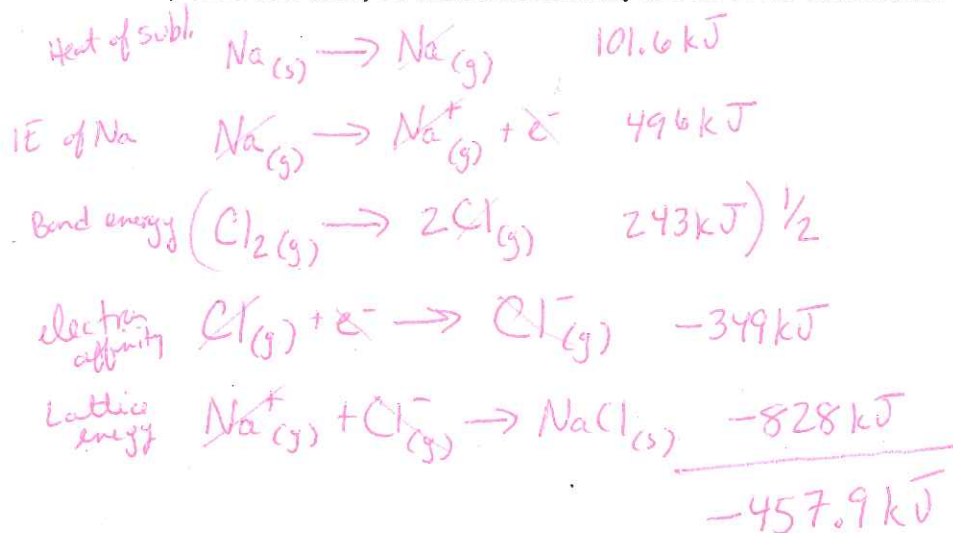 Heat of subl. Na(s) → Na(g) 101.6 kJ
IE of Na Na(g) → Na⁺(g) + e⁻ 496 kJ
Bond energy (Cl₂(g) → 2Cl(g) 243 kJ) ½
electron affinity Cl(g) + e⁻ → Cl⁻(g) -349 kJ
Lattice energy Na⁺(g) + Cl⁻(g) → NaCl(s) -828 kJ
-457.9 kJ